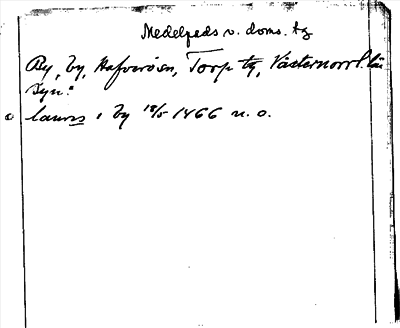 Medelpads v. doms. tg
By, by, Hafverösn, Torp tg, Västernorrl. län
Syn:
laurns i by 18/5 1466 n. o.